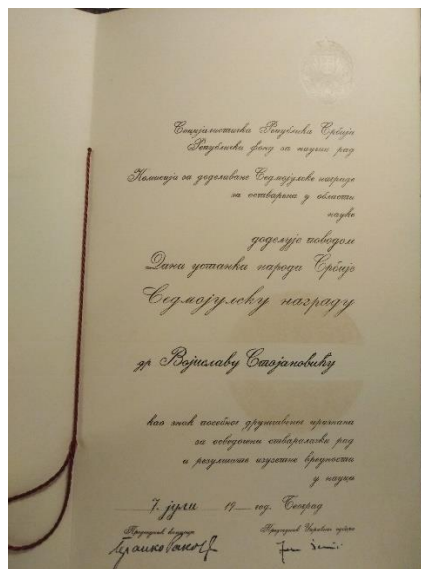 Социјалистичка Република Србија
Републички фонд за научни рад
Комисија за додељивање Седмојулске награде
за остварења у области
науке
додељује поводом
Дана устанка народа Србије
Седмојулску награду
др Војиславу Стојановићу
као знак посебног друштвеног признања
за осведочени стваралачки рад
и резултате изузетне вредности
у науци
7. јули 19__ год. Београд
Председник комисије
Председник Управног одбора